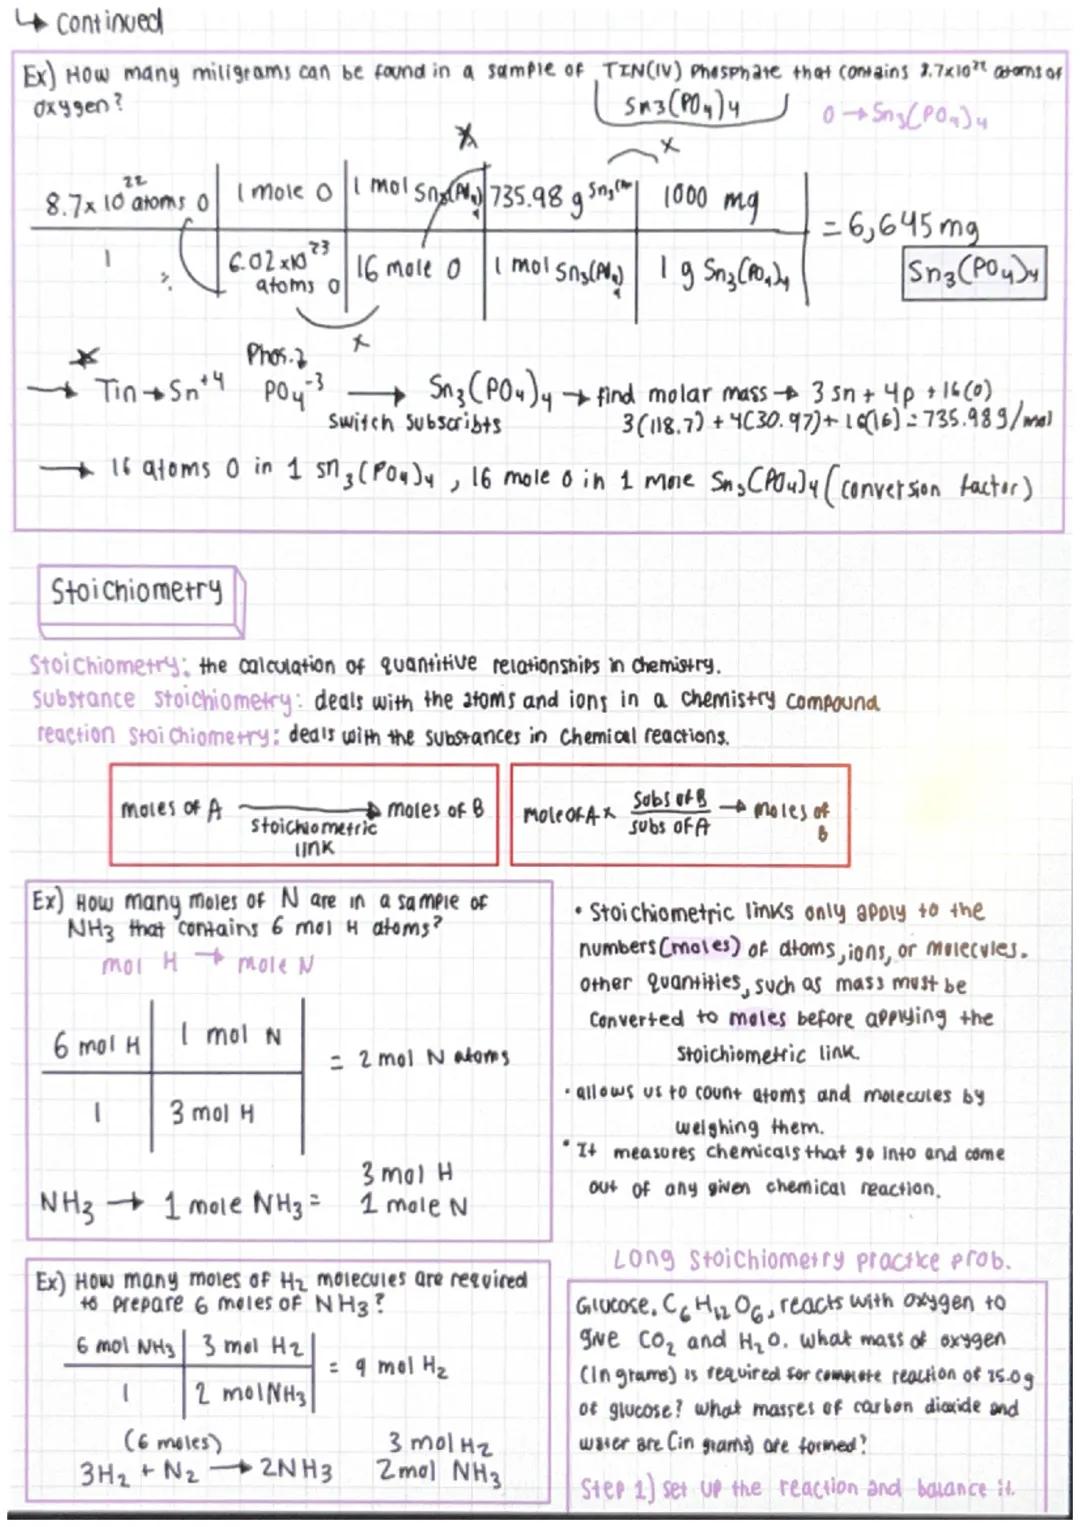 ↳ Continued
Ex) How many miligrams can be found in a sample of TIN(IV) Phosphate that contains 8.7x10²² atoms of
oxygen?
Sn₃(PO₄)₄
O → Sn₃(PO₄)₄
8.7x10²² atoms O | 1 mole O | 1 mol Sn₃(PO₄)₄ | 735.98 g Sn₃(PO₄)₄ | 1000 mg
1 | 6.02x10²³ atoms O | 16 mole O | 1 mol Sn₃(PO₄)₄ | 1 g Sn₃(PO₄)₄
= 6,645 mg
Sn₃(PO₄)₄
→ Tin → Sn⁺⁴ PO₄⁻³ → Sn₃(PO₄)₄ → find molar mass → 3 Sn + 4P + 16(O)
switch subscribts 3(118.7) + 4(30.97) + 16(16) = 735.98 g/mol
→ 16 atoms O in 1 Sn₃(PO₄)₄, 16 mole O in 1 mole Sn₃(PO₄)₄ (conversion factor)
Stoichiometry
Stoichiometry: the calculation of quantitive relationships in chemistry.
Substance stoichiometry: deals with the atoms and ions in a chemistry compound
reaction stoichiometry: deals with the substances in chemical reactions.
moles of A → moles of B
stoichiometric
link
Mole of A x Subs of B / subs of A → moles of
B
Ex) How many moles of N are in a sample of
NH₃ that contains 6 mol H atoms?
mol H → mole N
6 mol H | 1 mol N
= 2 mol N atoms
1 | 3 mol H
3 mol H
NH₃ → 1 mole NH₃ = 1 mole N
• Stoichiometric links only apply to the
numbers (moles) of atoms, ions, or molecules.
other quantities, such as mass must be
converted to moles before applying the
stoichiometric link.
• allows us to count atoms and molecules by
weighing them.
• It measures chemicals that go into and come
out of any given chemical reaction.
Ex) How many moles of H₂ molecules are required
to prepare 6 moles of NH₃?
6 mol NH₃ | 3 mol H₂
= 9 mol H₂
1 | 2 mol NH₃
(6 moles) 3 mol H₂
3H₂ + N₂ → 2NH₃ 2 mol NH₃
Long stoichiometry practice prob.
Glucose, C₆H₁₂O₆, reacts with oxygen to
give CO₂ and H₂O. what mass of oxygen
(in grams) is required for complete reaction of 25.0g
of glucose? what masses of carbon dioxide and
water are (in grams) are formed?
Step 1) set up the reaction and balance it.